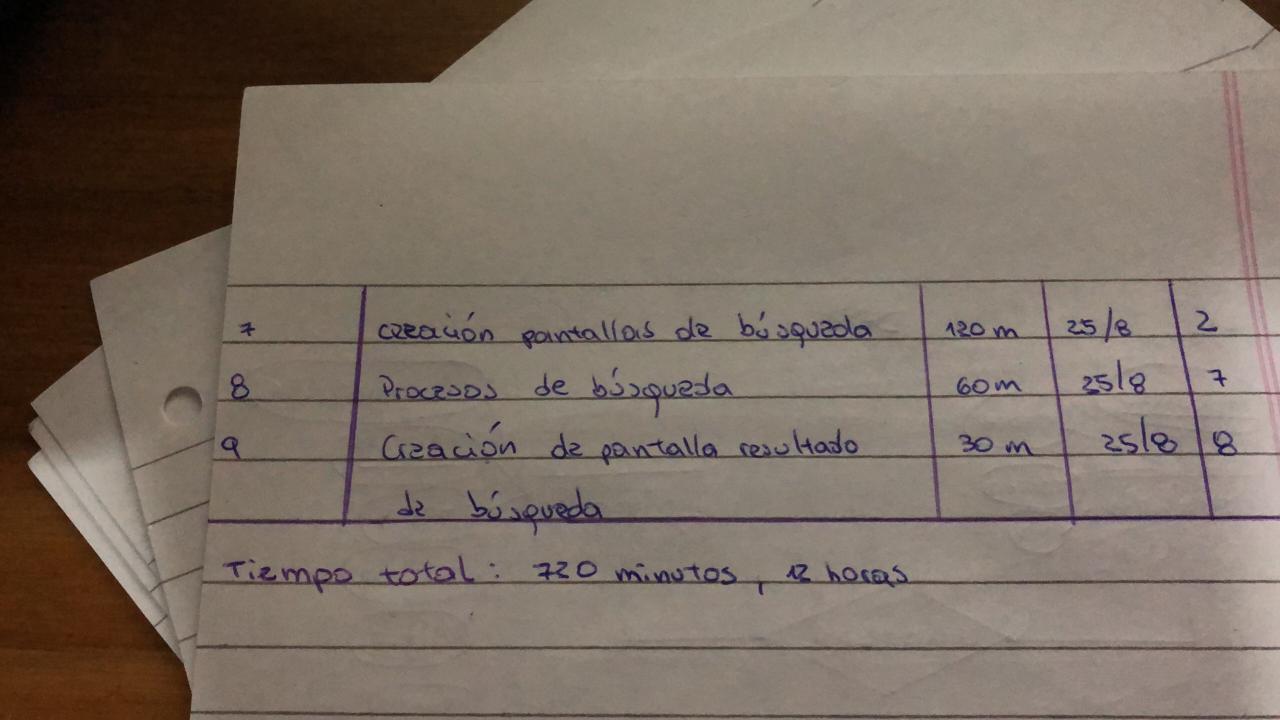 7 creación pantallas de búsqueda 120 m 25/8 2
8 Procesos de búsqueda 60 m 25/8 7
9 Creación de pantalla resultado 30 m 25/8 8
de búsqueda
Tiempo total: 720 minutos, 12 horas